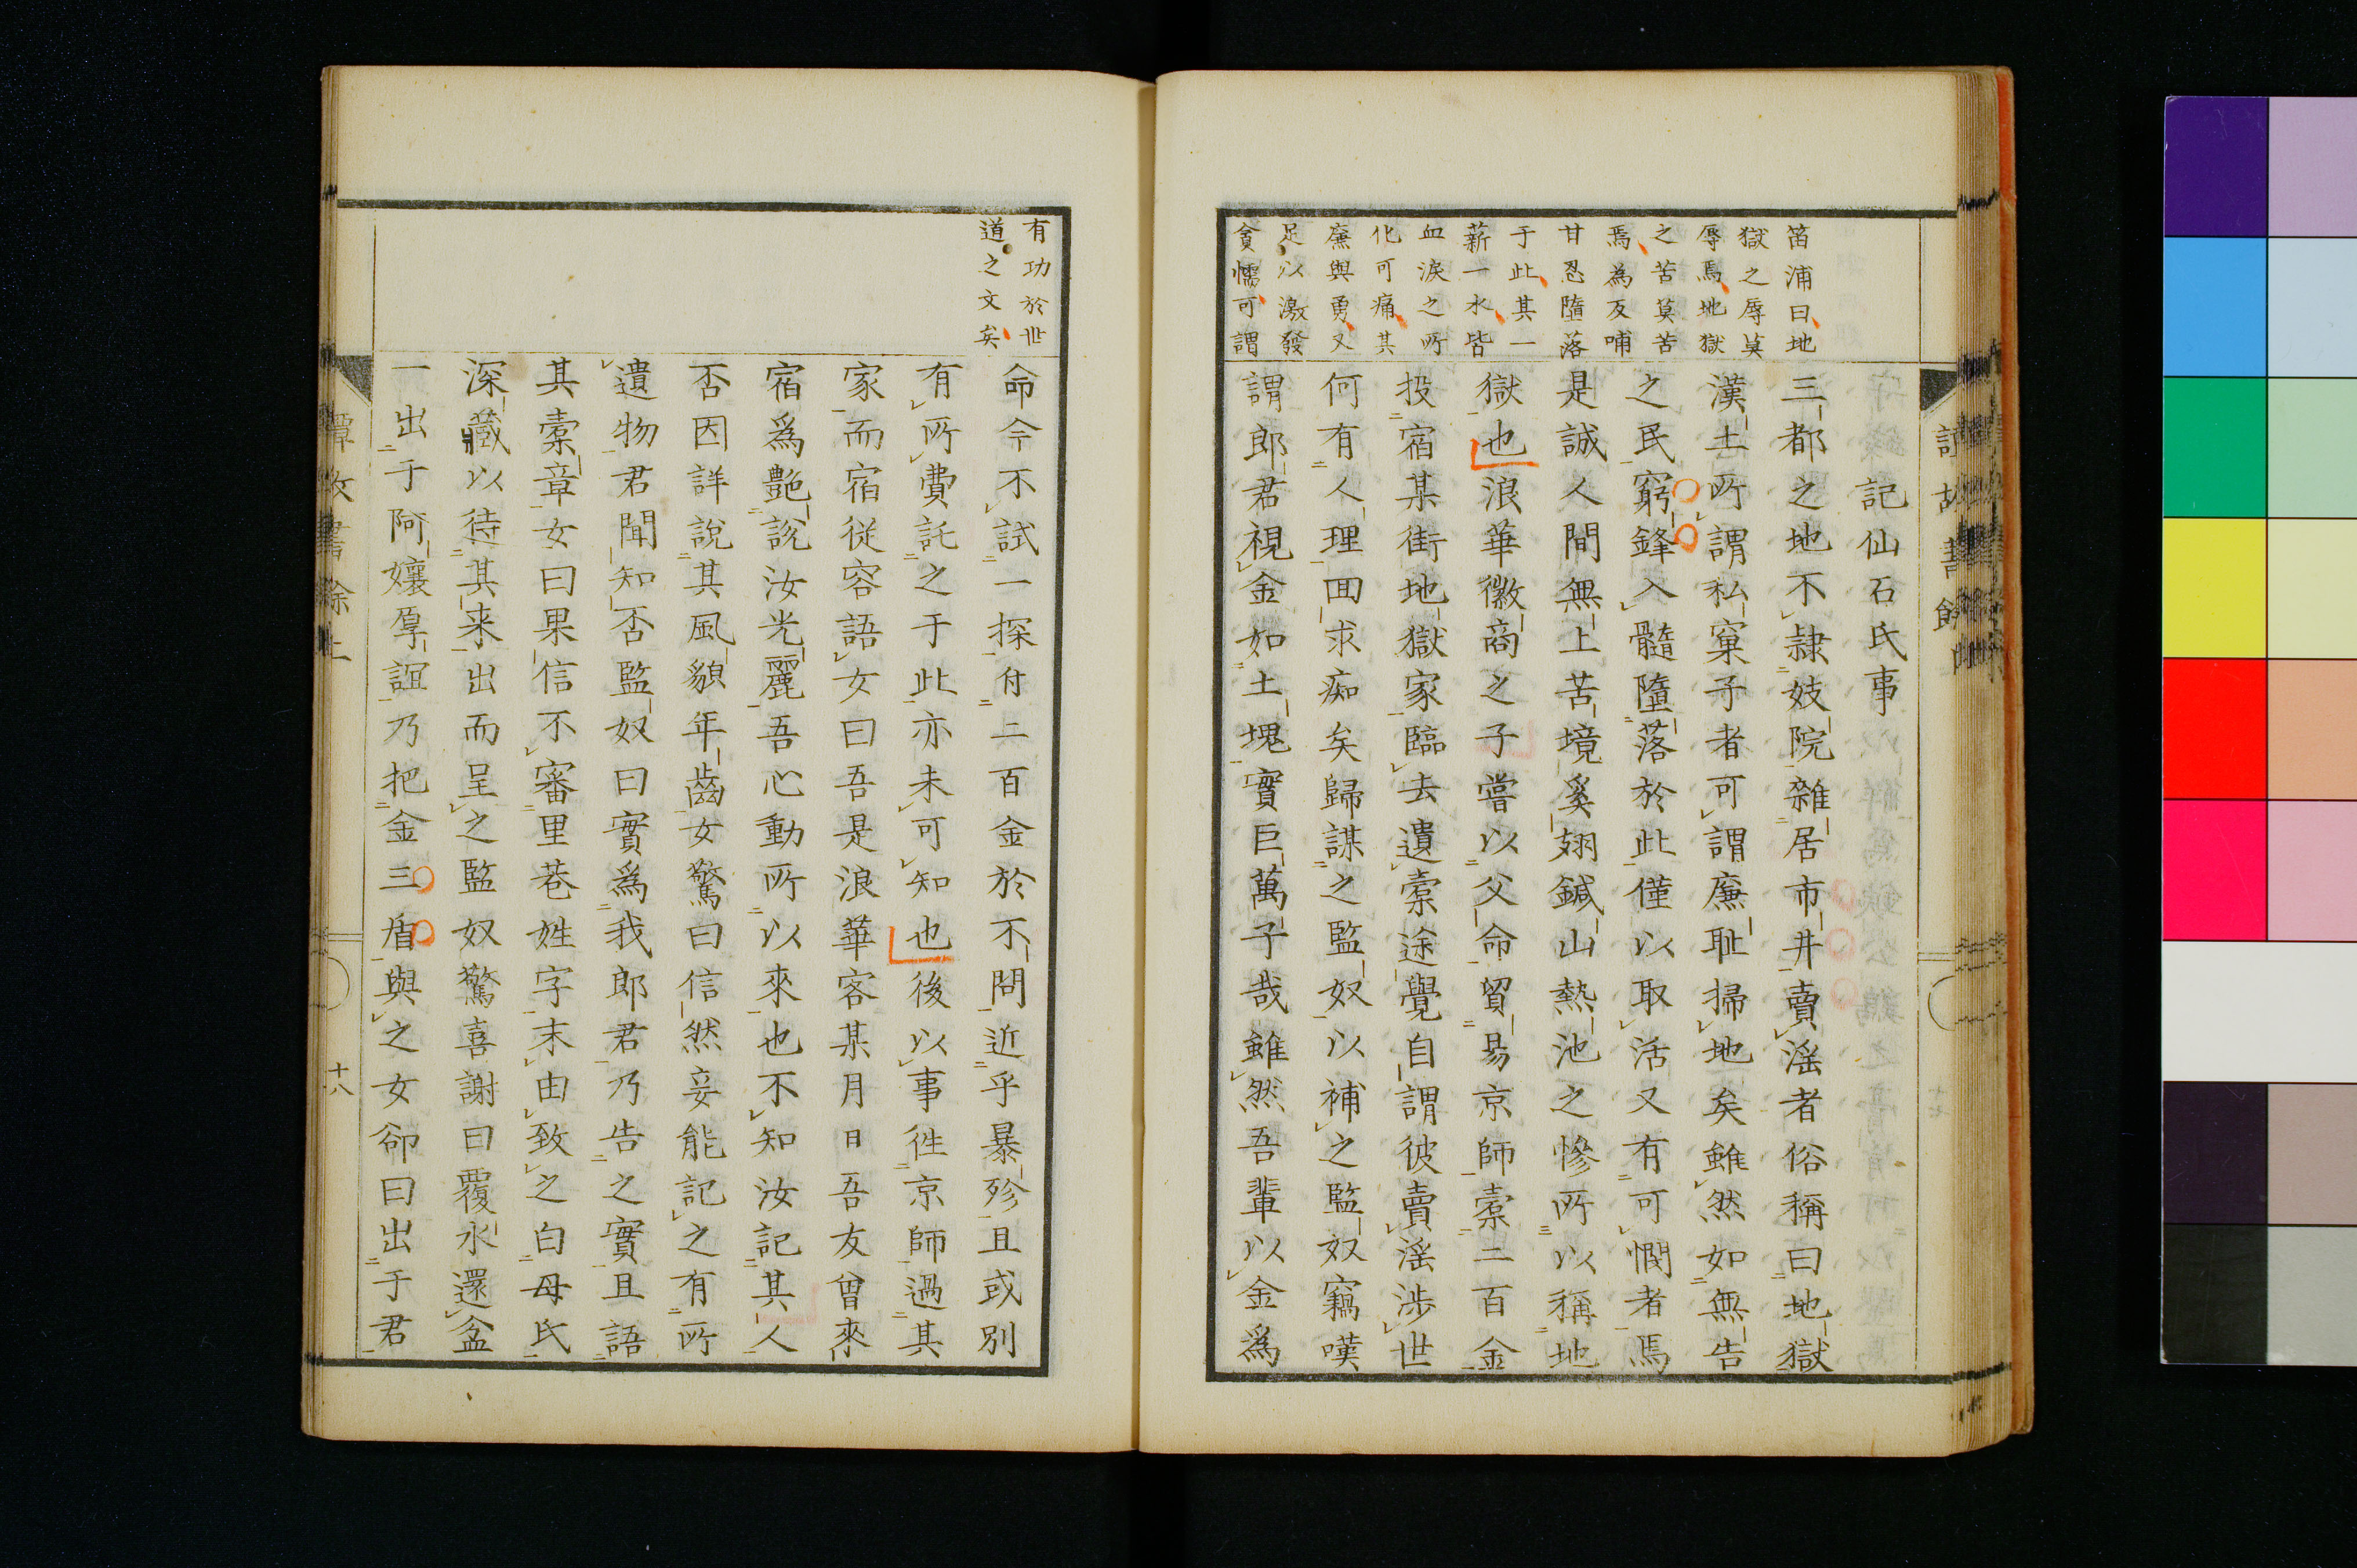 記仙石氏事
三都之地不隷妓院雜居市井賣淫者俗稱曰地獄
漢土所謂私窠子者可謂廉耻掃地矣雖然如無告
之民窮鋒入髓墮落於此僅以取活又有可憫者焉
是誠人間無上苦境奚翅鍼山熱池之慘所以稱地
獄也浪華徽商之子嘗以父命貿易京師槖二百金
投宿某街地獄家臨去遺槖途覺自謂彼賣淫渉世
何有人理囬求痴矣歸謀之監奴以補之監奴竊嘆
謂郎君視金如土塊實巨萬子哉雖然吾輩以金爲
笛浦曰地
獄之辱莫
辱焉地獄
之苦莫苦
焉為反哺
甘忍墮落
于此其一
薪一水皆
血淚之所
化可痛其
廉與勇又
足以激發
貪懦可謂
命今不試一探付二百金於不問近乎暴殄且或別
有所費託之于此亦未可知也後以事徃京師過其
家而宿従容語女曰吾是浪華客某月日吾友曾來
宿爲艶説汝光麗吾心動所以來也不知汝記其人
否因詳説其風貌年齒女驚曰信然妾能記之有所
遺物君聞知否監奴曰實爲我郎君乃告之實且語
其槖章女曰果信不審里巷姓字末由致之白母氏
深藏以待其来出而呈之監奴驚喜謝曰覆水還盆
一出于阿孃厚誼乃把金三盾與之女卻曰出于君
有功於世
道之文矣
十八